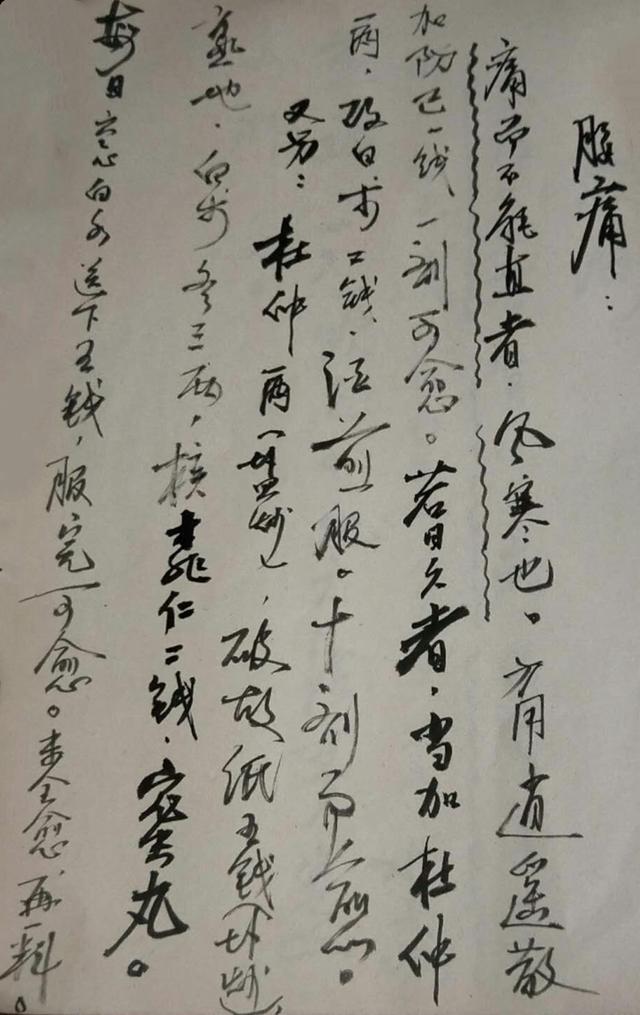 腰痛：
痛而不能直者，风寒也。方用逍遥散
加防已一钱一剂可愈。若日久者，当加杜仲
一两，改白术二钱，酒煎服。十剂而愈。
又方：杜仲一两（盐炒），破故纸五钱（盐炒），
熟地，白术各三两，核桃仁二钱，蜜丸。
每日空心白水送下五钱，服完可愈。未全愈再一料。